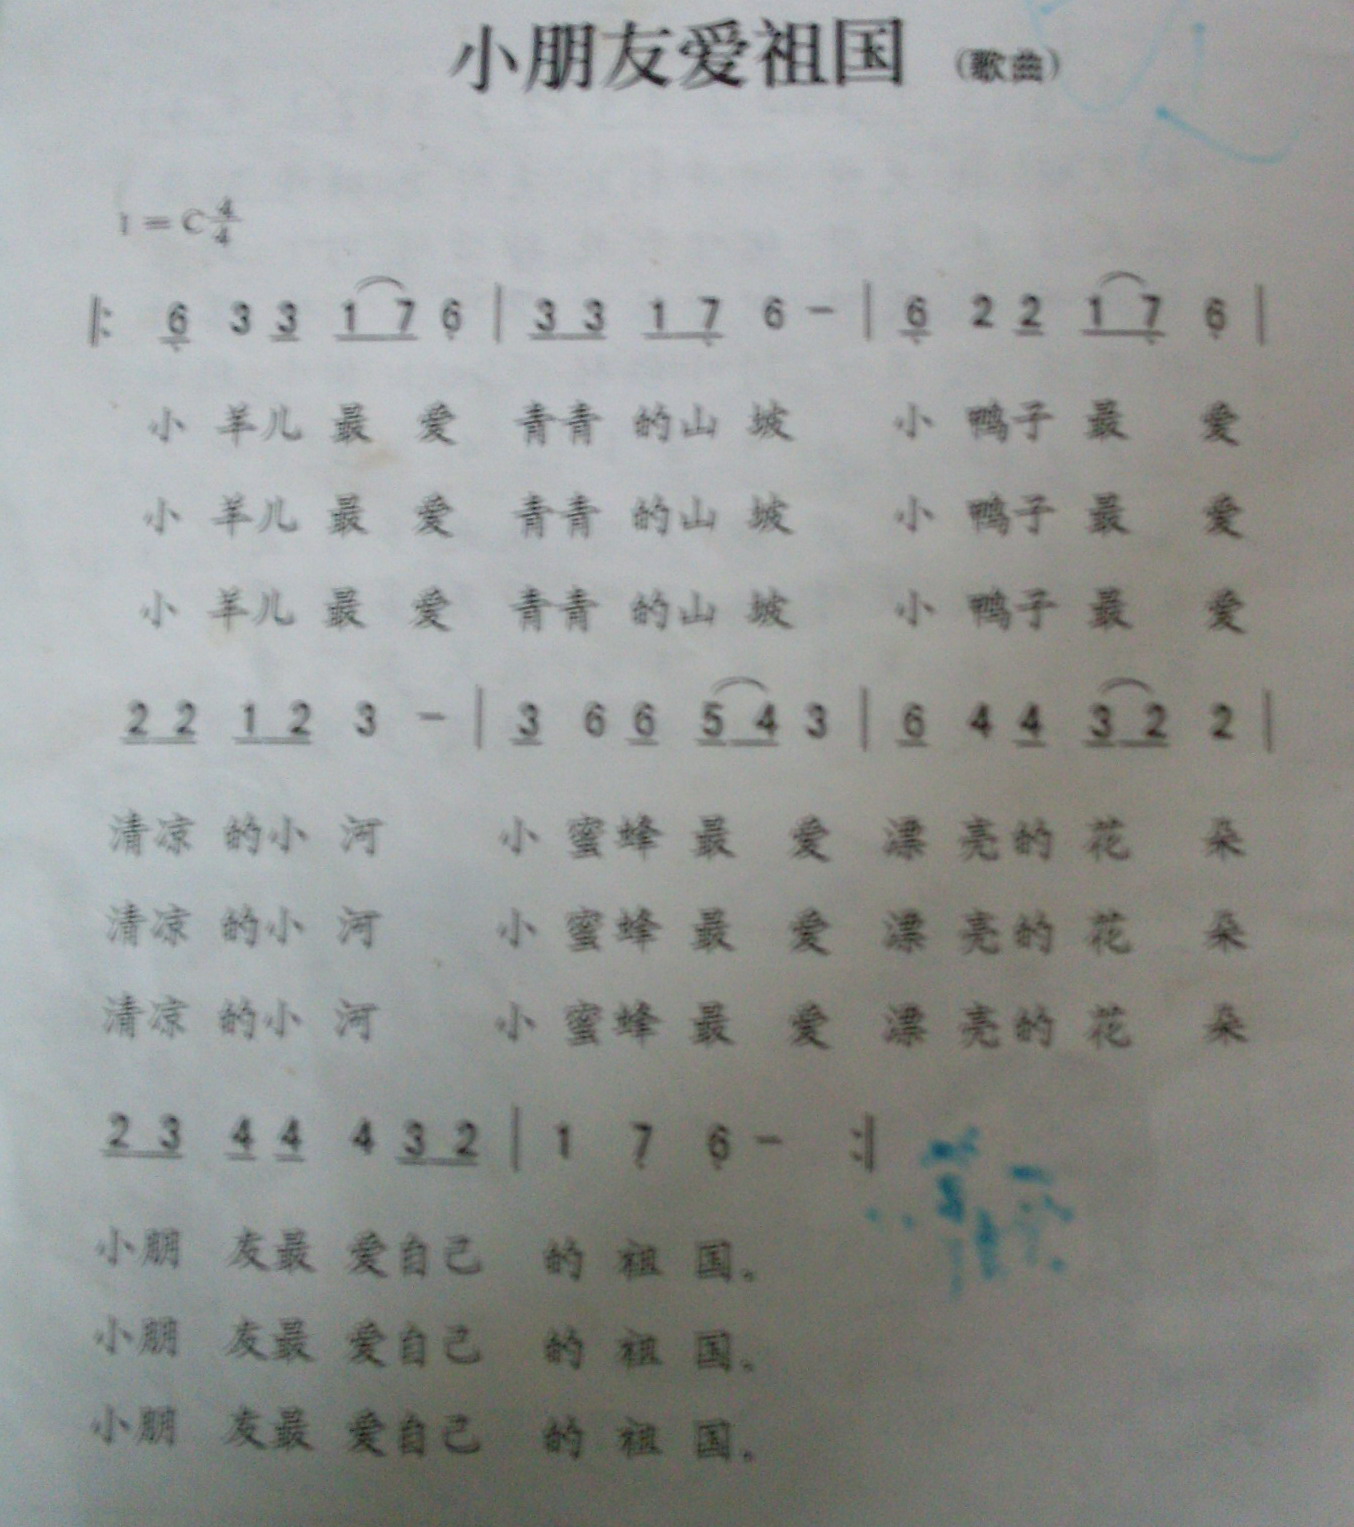 小朋友爱祖国 (歌曲)
1=C 4/4
|: 6̣ 3 3 1 7 6̣ | 3 3 1 7̣ 6 - | 6̣ 2 2 1 7̣ 6̣ |
小 羊儿 最 爱 青青 的山 坡 小 鸭子 最 爱
小 羊儿 最 爱 青青 的山 坡 小 鸭子 最 爱
小 羊儿 最 爱 青青 的山 坡 小 鸭子 最 爱
2 2 1 2 3 - | 3 6 6 5 4 3 | 6 4 4 3 2 2 |
清凉 的小 河 小 蜜蜂 最 爱 漂 亮的 花 朵
清凉 的小 河 小 蜜蜂 最 爱 漂 亮的 花 朵
清凉 的小 河 小 蜜蜂 最 爱 漂 亮的 花 朵
2 3 4 4 4 3 2 | 1 7̣ 6̣ - :|
小朋 友最 爱自己 的 祖 国。
小朋 友最 爱自己 的 祖 国。
小朋 友最 爱自己 的 祖 国。